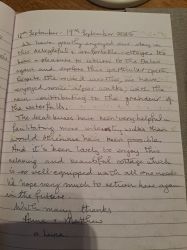 12th September - 19th September 2025
We have greatly enjoyed our stay in
this delightful & comfortable cottage. It's
been a pleasure to return to the
again and explore this particular
Despite the mixed weather, we have
enjoyed some walks, with the
rain contributing to the grandeur of
the waterfalls.
The local buses have been very helpful -
facilitating more walks than
would otherwise have been possible.
And it's been lovely to enjoy this
relaxing and beautiful cottage which
is so well-equipped with all one needs.
We hope very much to return here again
in the future
With many thanks
Anne & Matthew